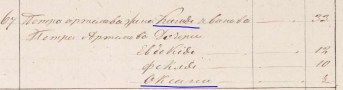 67 Петра Артемова жена Ксенія Иванова 32
Петра Артемова Дочери
Евдокія 13
Фекла 10
Оксана